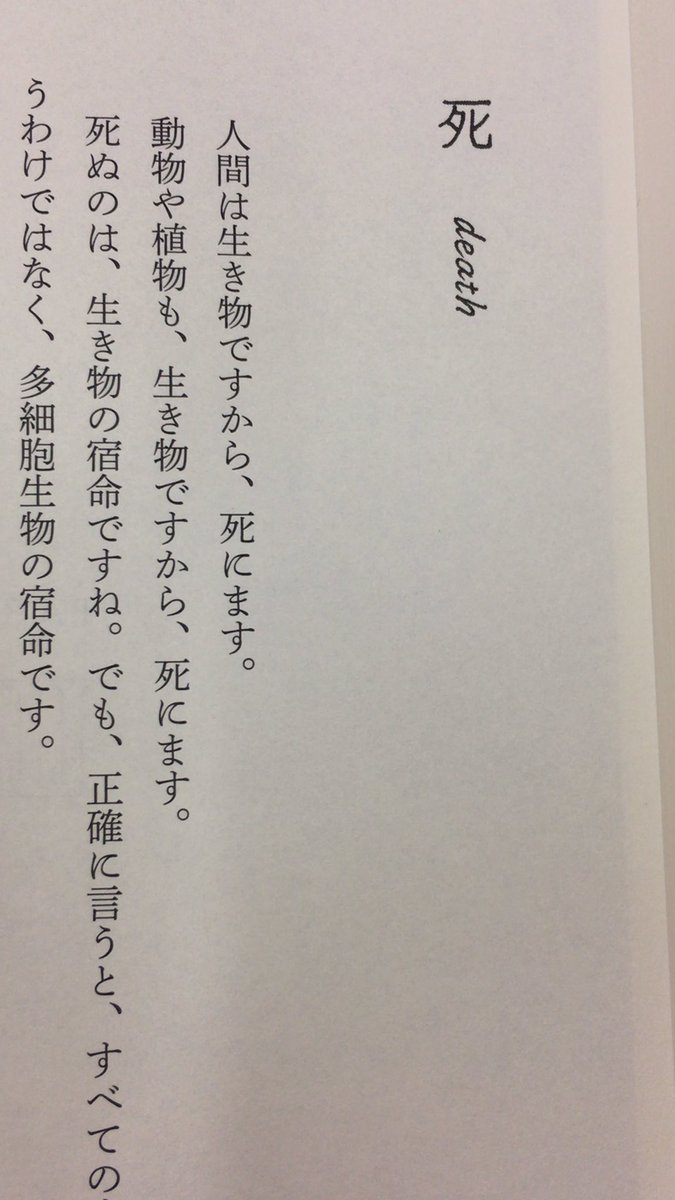 死 death
人間は生き物ですから、死にます。
動物や植物も、生き物ですから、死にます。
死ぬのは、生き物の宿命ですね。でも、正確に言うと、すべての
うわけではなく、多細胞生物の宿命です。